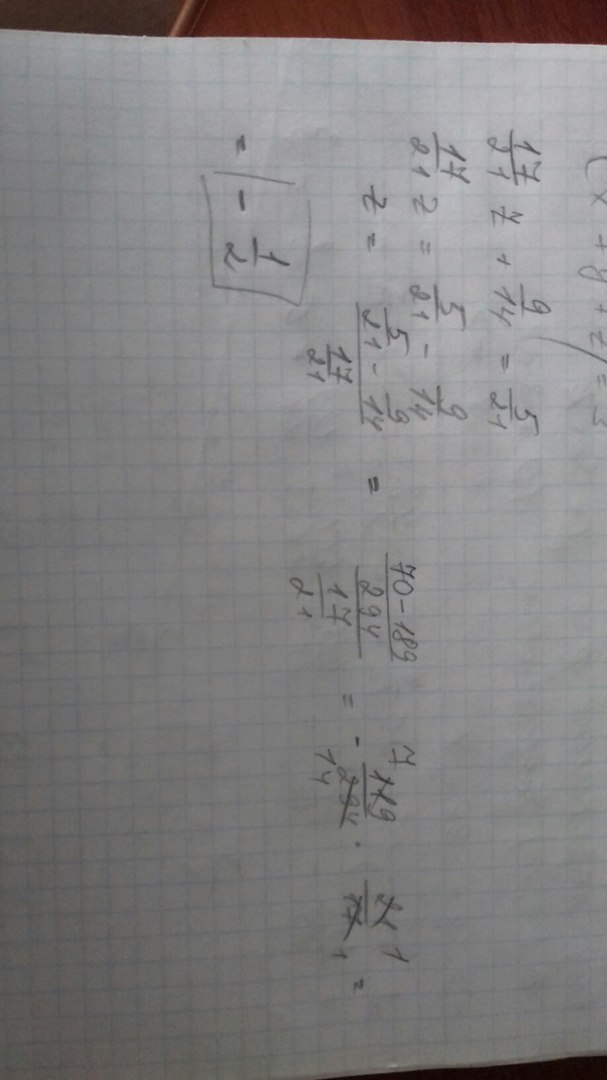 (x + y + z) = 3
17/21 z + 9/14 = 5/21
17/21 z = 5/21 - 9/14
z = (5/21 - 9/14)/(17/21) = ((70-189)/294)/(17/21) = - 119/294 · 21/17 =
7 14 1 1
= - 1/2